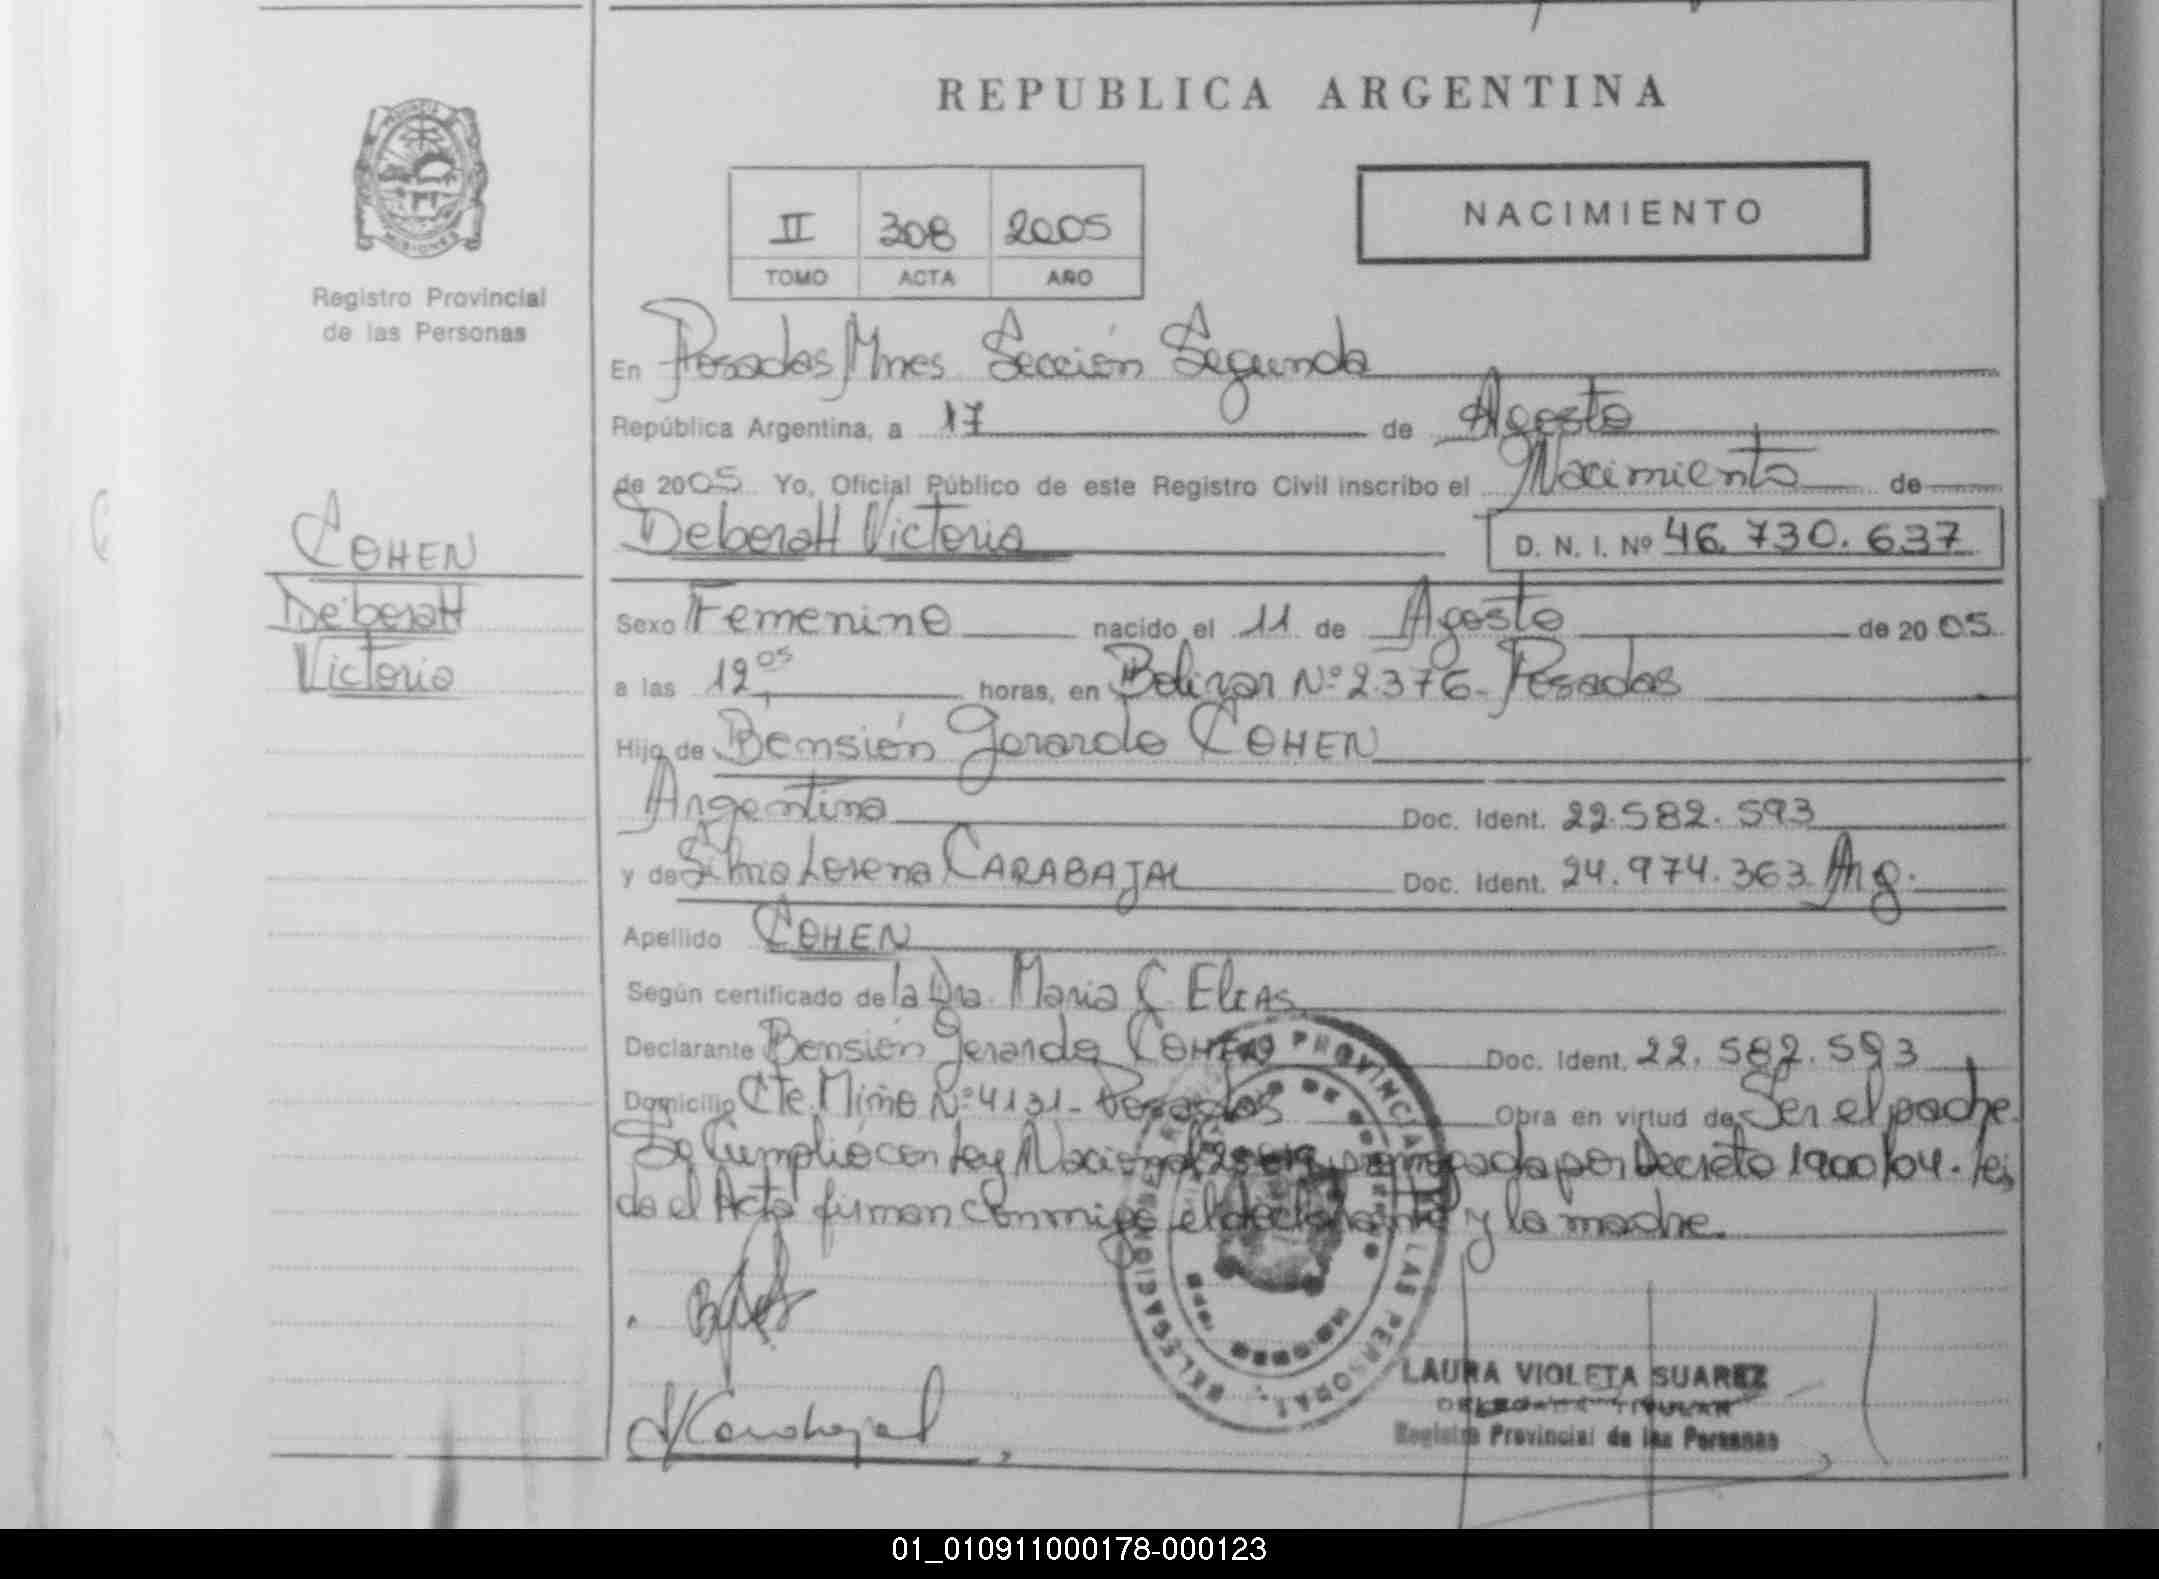 REPUBLICA ARGENTINA
PROVINCIA
MISIONES
Registro Provincial
de las Personas
II 308 2005
TOMO ACTA AÑO
NACIMIENTO
En Posadas Mnes Sección Segunda
República Argentina, a 17 de Agosto
de 2005 Yo, Oficial Público de este Registro Civil inscribo el Nacimiento de
COHEN
DeboraH Victoria D. N. I. Nº 46.730.637
DeboraH
Victoria
Sexo Femenino nacido el 11 de Agosto de 2005
a las 12,05 horas, en Bolivar Nº 2376- Posadas
Hijo de Bensión Gerardo COHEN
Argentina Doc. Ident. 22.582.593
y de Silvia Lorena CARABAJAL Doc. Ident. 24.974.363 Arg.
Apellido COHEN
Según certificado de la Dra. Maria C. ELIAS
Declarante Bensión Gerardo COHEN Doc. Ident. 22.582.593
Domicilio Cte. Miño Nº 4131- Posadas Obra en virtud de Ser el padre.
Se Cumplió con Ley Nacional por Decreto 1900/04. lei
da el Acta firman conmigo el declarante y la madre.
PROVINCIAL LAS PERSONAS
Carabajal
LAURA VIOLETA SUAREZ
DELEGADA TITULAR
Registro Provincial de las Personas
01_010911000178-000123